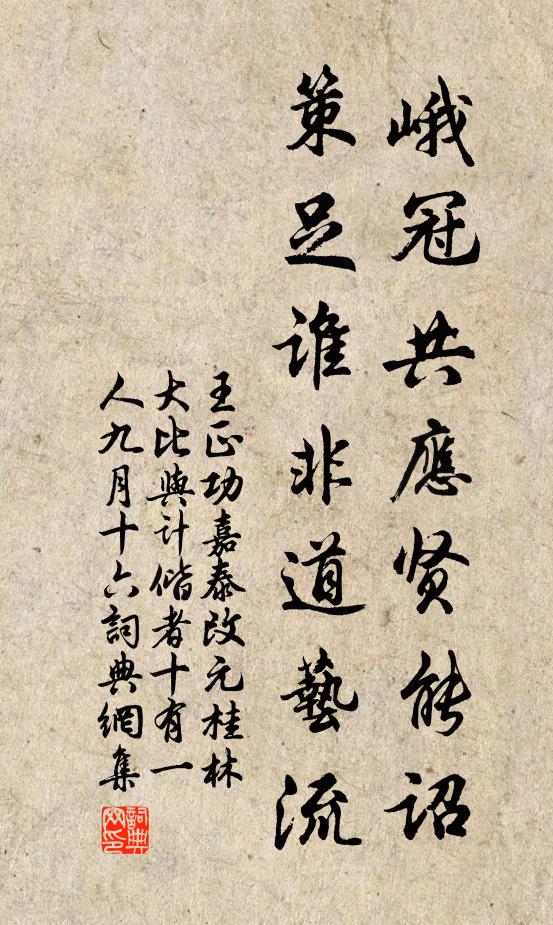 峨冠共應贤能詔
策足谁非道藝流
王正功嘉泰改元桂林
大比與计偕者十有一
人九月十六詞典網集
詞典网印